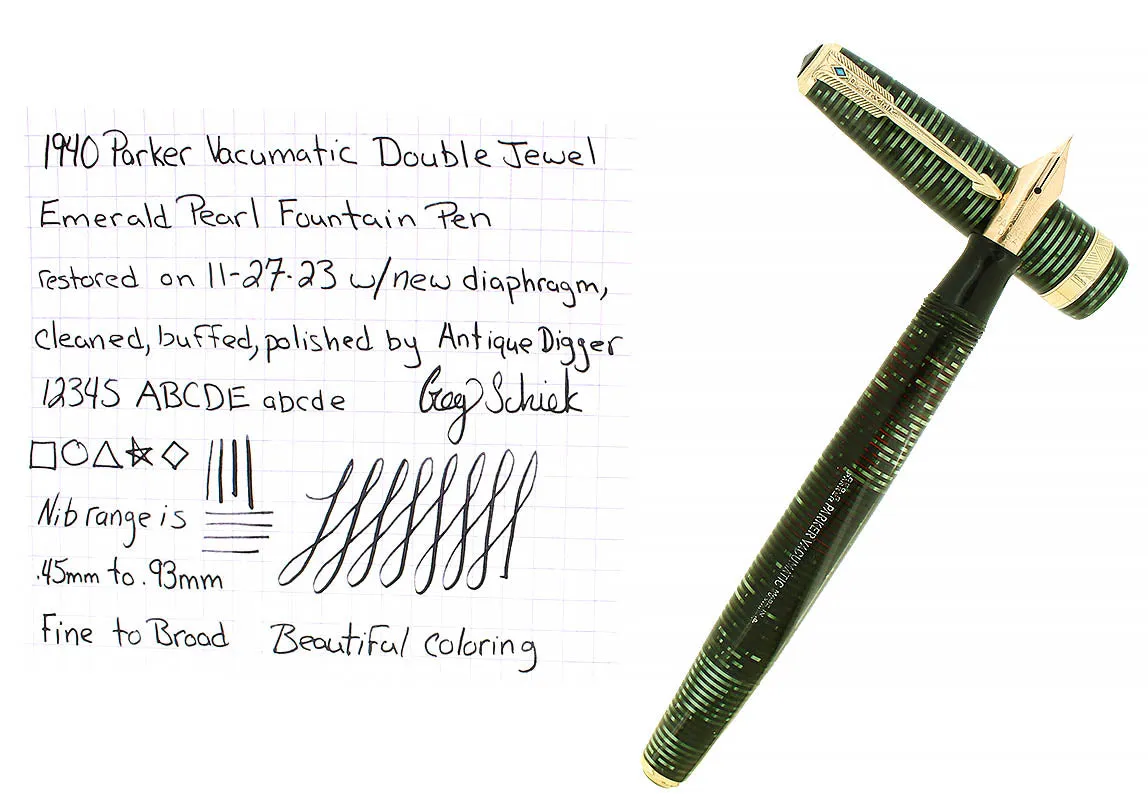 1940 Parker Vacumatic Double Jewel
Emerald Pearl Fountain Pen
restored on 11-27-23 w/new diaphragm,
cleaned, buffed, polished by Antique Digger
12345 ABCDE abcde Greg Schiek
Nib range is
.45mm to .93mm
Fine to Broad Beautiful coloring
PARKER VACUMATIC MADE IN